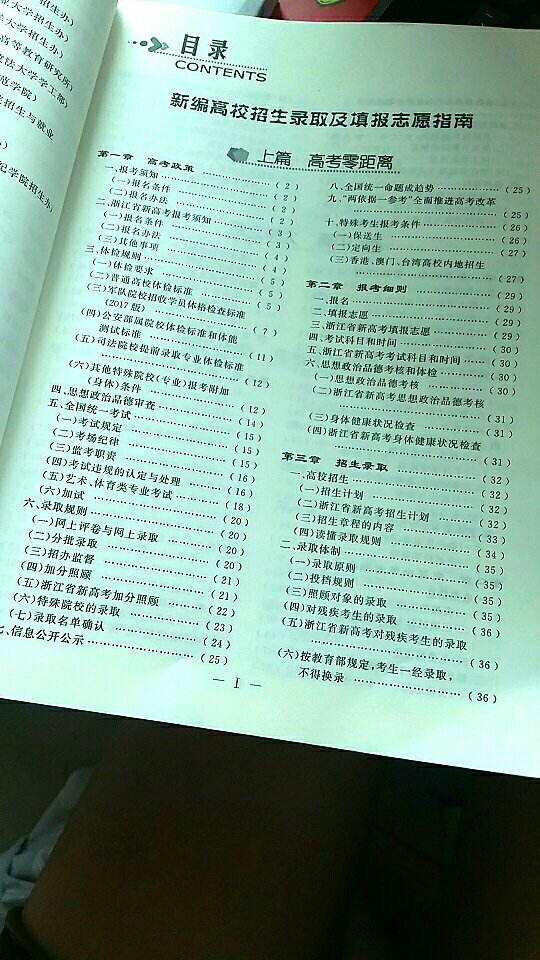 业大学招生办)
大学招生办)
高等教育研究所)
政法大学学工部)
范学院)
院招生与就业
)
纪学院招生办)
目录
CONTENTS
新编高校招生录取及填报志愿指南
上篇 高考零距离
第一章 高考政策
一、报考须知 ……………………(2)
(一)报名条件 ……………………(2)
(二)报名办法 ……………………(2)
二、浙江省新高考报考须知 …………(3)
(一)报名条件 ……………………(3)
(二)报名办法 ……………………(3)
(三)其他事项 ……………………(4)
三、体检规则 ……………………(4)
(一)体检要求 ……………………(5)
(二)普通高校体检标准 ……………(5)
(三)军队院校招收学员体格检查标准
(2017版) ……………………(7)
(四)公安部属院校体检标准和体能
测试标准 ……………………(11)
(五)司法院校提前录取专业体检标准
……………………(12)
(六)其他特殊院校(专业)报考附加
(身体)条件 ……………………(12)
四、思想政治品德审查 ……………(14)
五、全国统一考试 ……………………(15)
(一)考试规定 ……………………(15)
(二)考场纪律 ……………………(15)
(三)监考职责 ……………………(16)
(四)考试违规的认定与处理 …………(16)
(五)艺术、体育类专业考试 …………(18)
(六)加试 ……………………(20)
六、录取规则 ……………………(20)
(一)网上评卷与网上录取 …………(20)
(二)分批录取 ……………………(20)
(三)招办监督 ……………………(21)
(四)加分照顾 ……………………(21)
(五)浙江省新高考加分照顾 …………(22)
(六)特殊院校的录取 ……………(23)
(七)录取名单确认 ……………………(24)
七、信息公开公示 ……………………(25)
八、全国统一命题成趋势 ……………(25)
九、“两依据一参考”全面推进高考改革
……………………(25)
十、特殊考生报考条件 ……………(26)
(一)保送生 ……………………(26)
(二)定向生 ……………………(27)
(三)香港、澳门、台湾高校内地招生
……………………(27)
第二章 报考细则 ……………………(29)
一、报名 ……………………(29)
二、填报志愿 ……………………(29)
三、浙江省新高考填报志愿 …………(29)
四、考试科目和时间 ……………(30)
五、浙江省新高考考试科目和时间 ……(30)
六、思想政治品德考核和体检 …………(30)
(一)思想政治品德考核 ……………(30)
(二)浙江省新高考思想政治品德考核
……………………(31)
(三)身体健康状况检查 ……………(31)
(四)浙江省新高考身体健康状况检查
……………………(31)
第三章 招生录取 ……………………(32)
一、高校招生 ……………………(32)
(一)招生计划 ……………………(32)
(二)浙江省新高考招生计划 …………(32)
(三)招生章程的内容 ……………(33)
(四)读懂录取规则 ……………………(34)
二、录取体制 ……………………(35)
(一)录取原则 ……………………(35)
(二)投档规则 ……………………(35)
(三)照顾对象的录取 ……………(35)
(四)对残疾考生的录取 ……………(36)
(五)浙江省新高考对残疾考生的录取
……………………(36)
(六)按教育部规定,考生一经录取,
不得换录 ……………………(36)
— I —